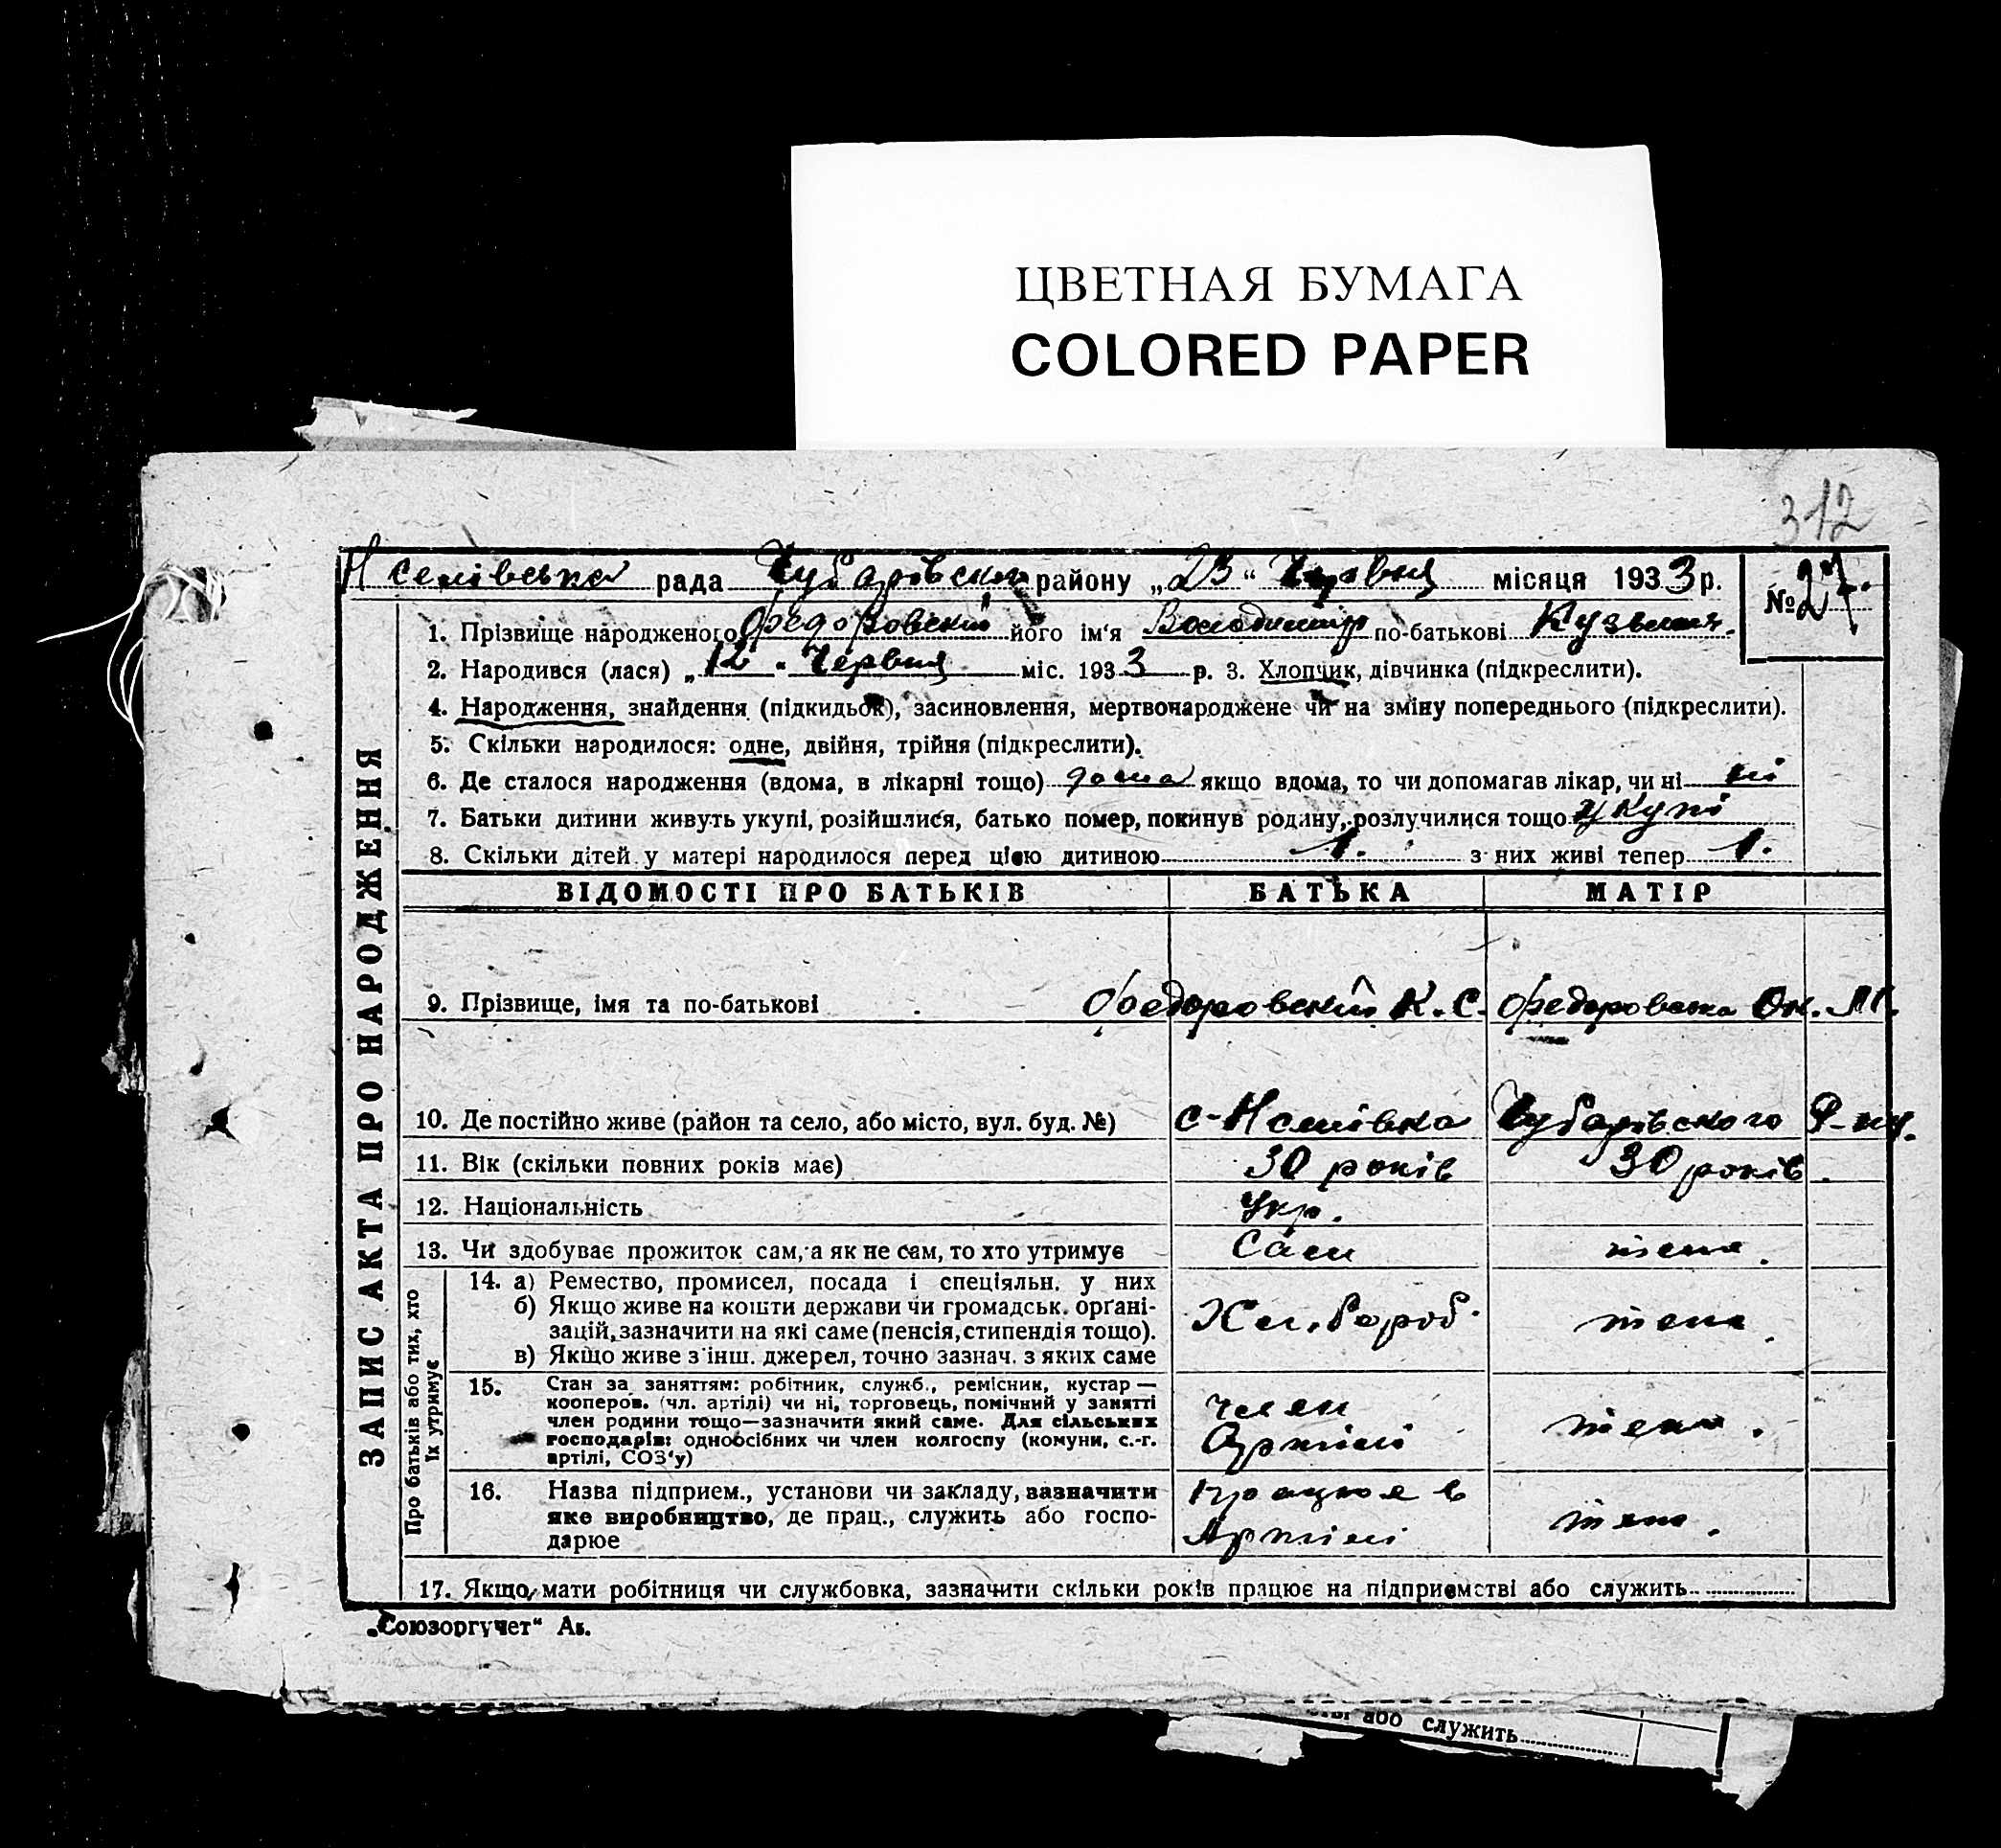 ЦВЕТНАЯ БУМАГА
COLORED PAPER
312
рада Чубарівська району „23“ Червня місяця 1933 р. № 27.
ЗАПИС АКТА ПРО НАРОДЖЕННЯ
1. Прізвище народженого Федоровский його ім'я Володимир по-батькові Кузьмич.
2. Народився (лася) „12“ Червня міс. 1933 р. 3. Хлопчик, дівчинка (підкреслити).
4. Народження, знайдення (підкидьок), засиновлення, мертвонароджене чи на зміну попереднього (підкреслити).
5. Скільки народилося: одне, двійня, трійня (підкреслити).
6. Де сталося народження (вдома, в лікарні тощо) дома якщо вдома, то чи допомагав лікар, чи ні ні
7. Батьки дитини живуть укупі, розійшлися, батько помер, покинув родину, розлучилися тощо укупі
8. Скільки дітей у матері народилося перед цією дитиною 1. з них живі тепер 1.
ВІДОМОСТІ ПРО БАТЬКІВ БАТЬКА МАТІР
9. Прізвище, імя та по-батькові Федоровский К. С. Федоровська Ок. М.
10. Де постійно живе (район та село, або місто, вул. буд. №) Чубарівського Р-ну.
11. Вік (скільки повних років має) 30 років 30 років.
12. Національність Укр.
13. Чи здобуває прожиток сам, а як не сам, то хто утримує Сам теж.
Про батьків або тих, хто їх утримує
14. а) Ремество, промисел, посада і спеціяльн. у них
б) Якщо живе на кошти держави чи громадськ. органі-
зацій, зазначити на які саме (пенсія, стипендія тощо). теж.
в) Якщо живе з інш. джерел, точно зазнач. з яких саме
15. Стан за заняттям: робітник, служб., ремісник, кустар —
кооперов. (чл. артілі) чи ні, торговець, помічний у занятті
член родини тощо—зазначити який саме. Для сільських
господарів: одноосібних чи член колгоспу (комуни, с.-г.
артілі, СОЗ'у)
член
Артілі теж.
16. Назва підприєм., установи чи закладу, зазначити
яке виробництво, де прац., служить або госпо-
дарює
працює в
Артілі теж.
17. Якщо мати робітниця чи службовка, зазначити скільки років працює на підприємстві або служить
„Союзоргучет“
або служить